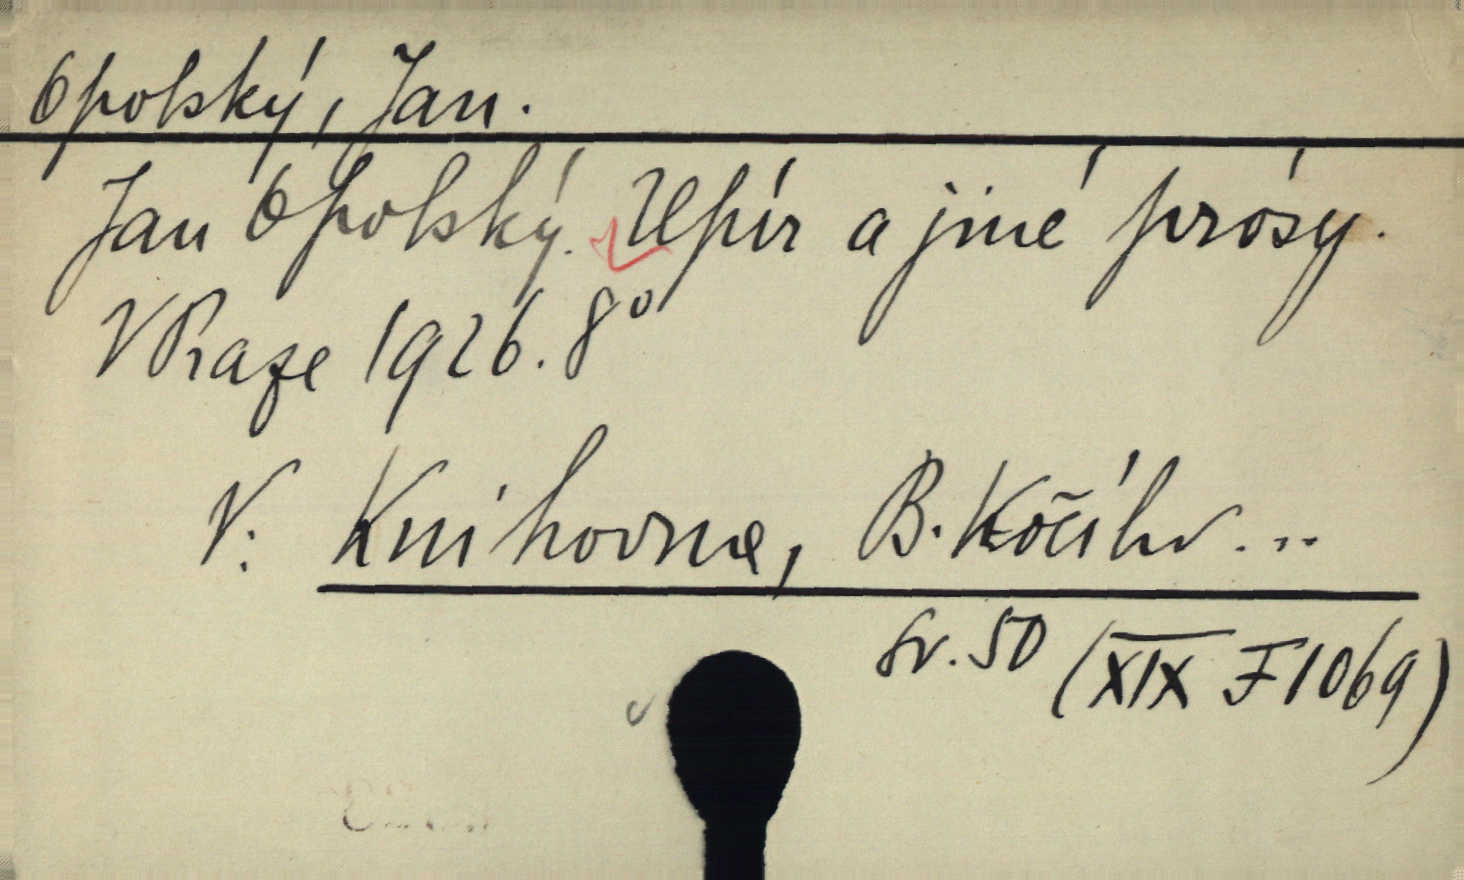 Opolský, Jan.
Jan Opolský. Upír a jiné prósy.
V Praze 1926. 8°
V: Knihovna, B. Kočího...
sv. 50 (XIX F 1069)